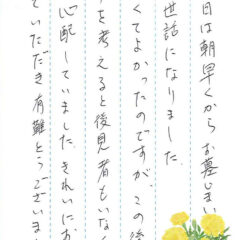 日は朝早くからお墓じまい
世話になりました
くてよかったのですが、この後
を考えると後見者もいなく
心配していました。きれいにお
ていただき有難とうございまし